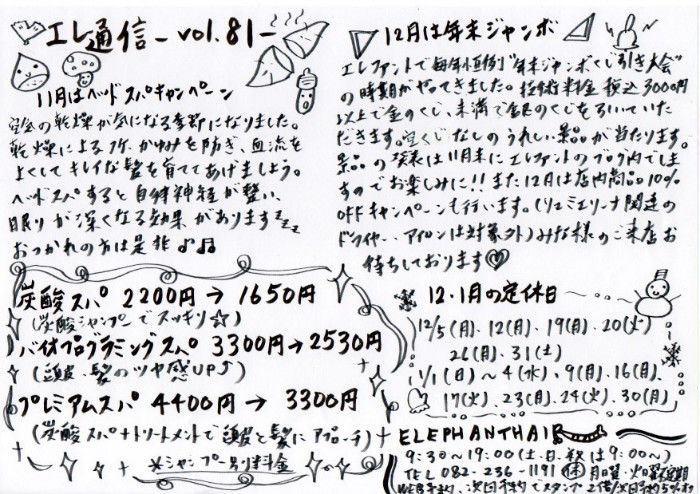 エレ通信 - vol.81-
11月はヘッドスパキャンペーン
空気の乾燥が気になる季節になりました。
乾燥によるフケ、かゆみを防ぎ、血流を
よくしてキレイな髪を育ててあげましょう。
ヘッドスパすると自律神経が整い、
眠りが深くなる効果がありますzzz
おつかれの方は是非♪♫
炭酸スパ 2200円→1650円
(炭酸シャンプーでスッキリ☆)
バイオプログラミングスパ 3300円→2530円
(頭皮、髪のツヤ感UP♪)
プレミアムスパ 4400円→3300円
(炭酸スパ+トリートメントで頭皮と髪にアプローチ)
※シャンプー別料金
12月は年末ジャンボ
エレファントで毎年恒例"年末ジャンボくじ引き大会"
の時期がやってきました。技術料金税込3000円
以上で金のくじ、未満で銀のくじを引いていた
だきます。空くじなしのうれしい景品が当たります。
景品の発表は11月末にエレファントのブログ内でしま
すのでお楽しみに!!また12月は店内商品10%
OFFキャンペーンも行います。(リュミエリーナ関連の
ドライヤー、アイロンは対象外)みな様のご来店お
待ちしております♡
12・1月の定休日
12/5(月)、12(月)、19(月)、20(火)
26(月)、31(土)
1/1(日)〜4(水)、9(月)、16(月)、
17(火)、23(月)、24(火)、30(月)
ELEPHANTHAIR
9:30〜19:00(土、日、祝は9:00〜)
TEL 082-236-1191 休 月曜、火曜不定期
WEB予約、次回予約でスタンプ2倍/次回予約5%オフ